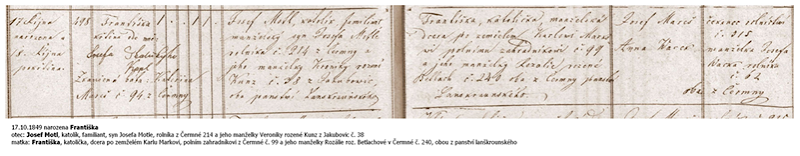 17. Října
narozena a
18. Října
pokřtěna.
498
Františka
křtil ode mne
Josefa
Kaplana
bába: Kateřina
Mareš č 94 z Čermny
1
1
1
Josef Motl, katolík familiant
manželský syn Josefa Motle
rolníka č 214 z Čermny a
jeho manželky Verony rozené
Kunz č 38 z Jakubovic,
oba panství Lanškrounského
Františka, katolička, manželská
Dcera po zemřelém Karlovi Marko-
vi polním zahradníkovi č 99
a jeho manželky Rozalie rozené
Betlach č 240 oba z Čermny panství
Lanškrounského.
Josef Mareš
Anna Vacek
č 215
manželka Josefa
Vacka rolníka
č 62
oba z Čermny
17.10.1849 narozena Františka
otec: Josef Motl, katolík, familiant, syn Josefa Motle, rolníka z Čermné 214 a jeho manželky Veroniky rozené Kunz z Jakubovic č. 38
matka: Františka, katolička, dcera po zemželém Karlu Markovi, polním zahradníkovi z Čermné č. 99 a jeho manželky Rozálie roz. Betlachové v Čermné č. 240, obou z panství lanškrounského